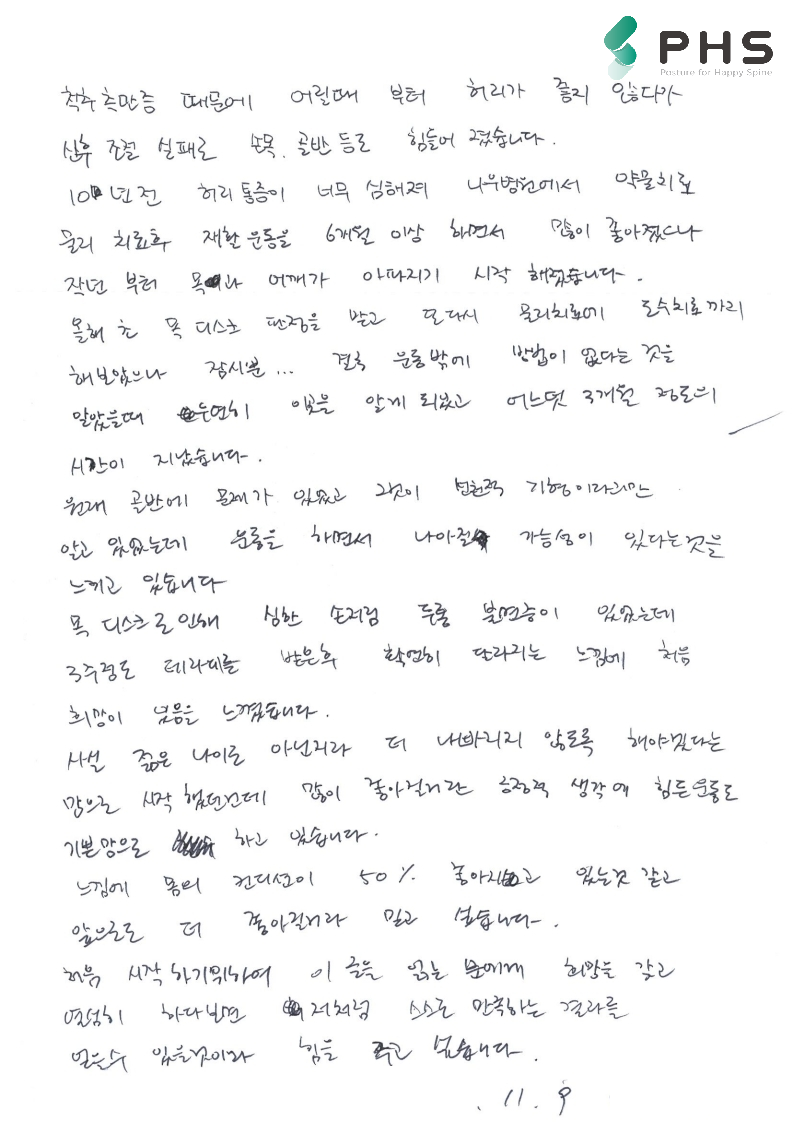 PHS
Posture for Happy Spine
척추측만증 때문에 어릴때 부터 허리가 좋지 않다가
산후 조절 실패로 손목, 골반 등로 힘들어 졌습니다.
10년전 허리통증이 너무 심해져 나우병원에서 약물치료
물리 치료후 재활운동을 6개월 이상 하면서 많이 좋아졌으나
작년 부터 목과 어깨가 아파지기 시작 해졌습니다.
올해 초 목 디스크 판정을 받고 또다시 물리치료에 도수치료까지
해보았으나 잠시뿐... 결국 운동밖에 방법이 없다는 것을
알았을때 우연히 이곳을 알게 되었고 어느덧 3개월 정도의
시간이 지났습니다.
원래 골반에 문제가 있었고 그것이 선천적 기형이라고만
알고 있었는데 운동을 하면서 나아질 가능성이 있다는것을
느끼고 있습니다
목 디스크로 인해 심한 손저림 두통 불면증이 있었는데
3주정도 테라피를 받은후 확연히 달라지는 느낌에 처음
희망이 있음을 느꼈습니다.
사실 젊은 나이도 아닌지라 더 나빠지지 않도록 해야겠다는
맘으로 시작 했던건데 많이 좋아질거란 긍정적 생각에 힘든운동도
기쁜맘으로 하고 있습니다.
느낌에 몸의 컨디션이 50% 좋아지고 있는것 같고
앞으로도 더 좋아질거라 믿고 싶습니다.
처음 시작하기위하여 이 글을 읽는 분에게 희망을 갖고
열심히 하다보면 저처럼 스스로 만족하는 결과를
얻을수 있을것이라 힘을 주고 싶습니다.
. 11. 9